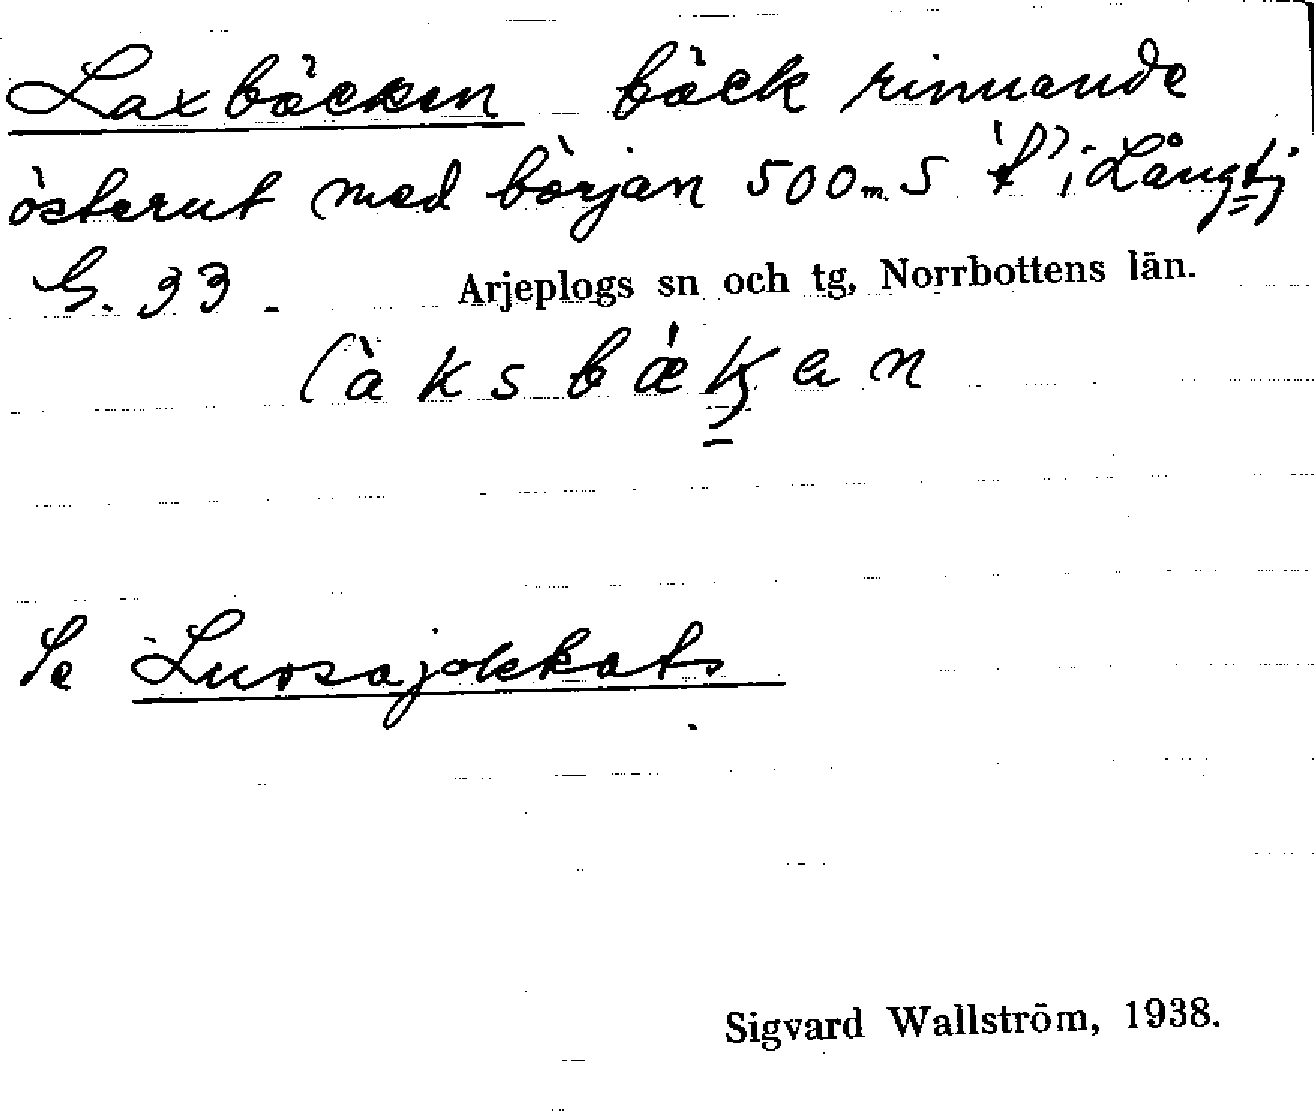 Laxbäcken bäck rinnande
österut med början 500 m S 't' i Långtj
G. 33. Arjeplogs sn och tg, Norrbottens län.
làksbækan
Se Luosajokkats
Sigvard Wallström, 1938.